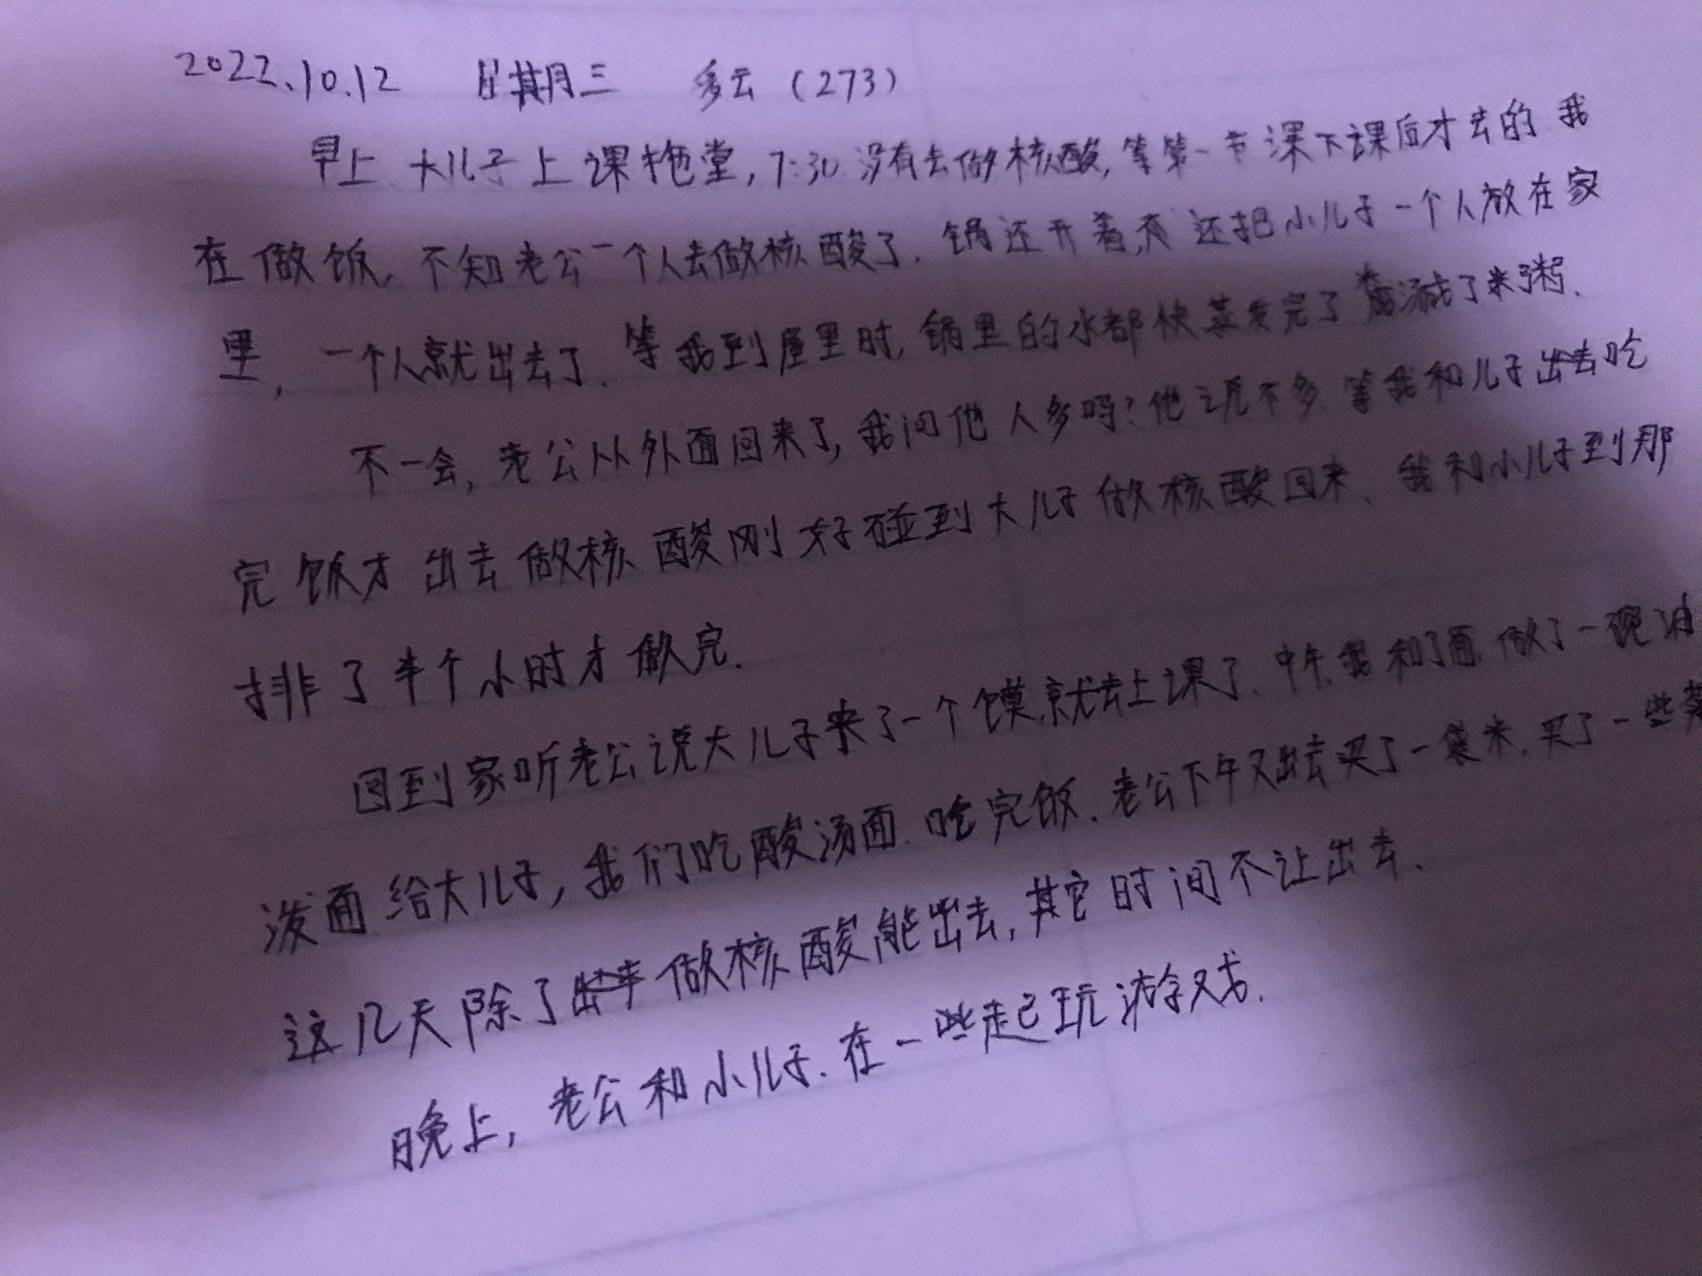 2022.10.12 星期三 多云（273）
早上、大儿子上课拖堂，7:30 没有去做核酸，等第一节课下课后才去的 我
在做饭，不知老公一个人去做核酸了．锅还开着，还把小儿子一个人放在家
里，一个人就出去了．等我到屋里时，锅里的水都快蒸发完了 了米粥．
不一会，老公从外面回来了，我问他人多吗？他说不多．等我和儿子出去吃
完饭才出去做核酸刚好碰到大儿子做核酸回来．我和小儿子到那
排了半个小时才做完．
回到家听老公说大儿子来了一个馍，就去上课了．中午，我和了面，做了一碗油
泼面给大儿子，我们吃酸汤面．吃完饭．老公下午又出去买了一袋米．买了一些菜
这几天除了做核酸能出去，其它时间不让出去．
晚上，老公和小儿子．在一些起玩游戏．